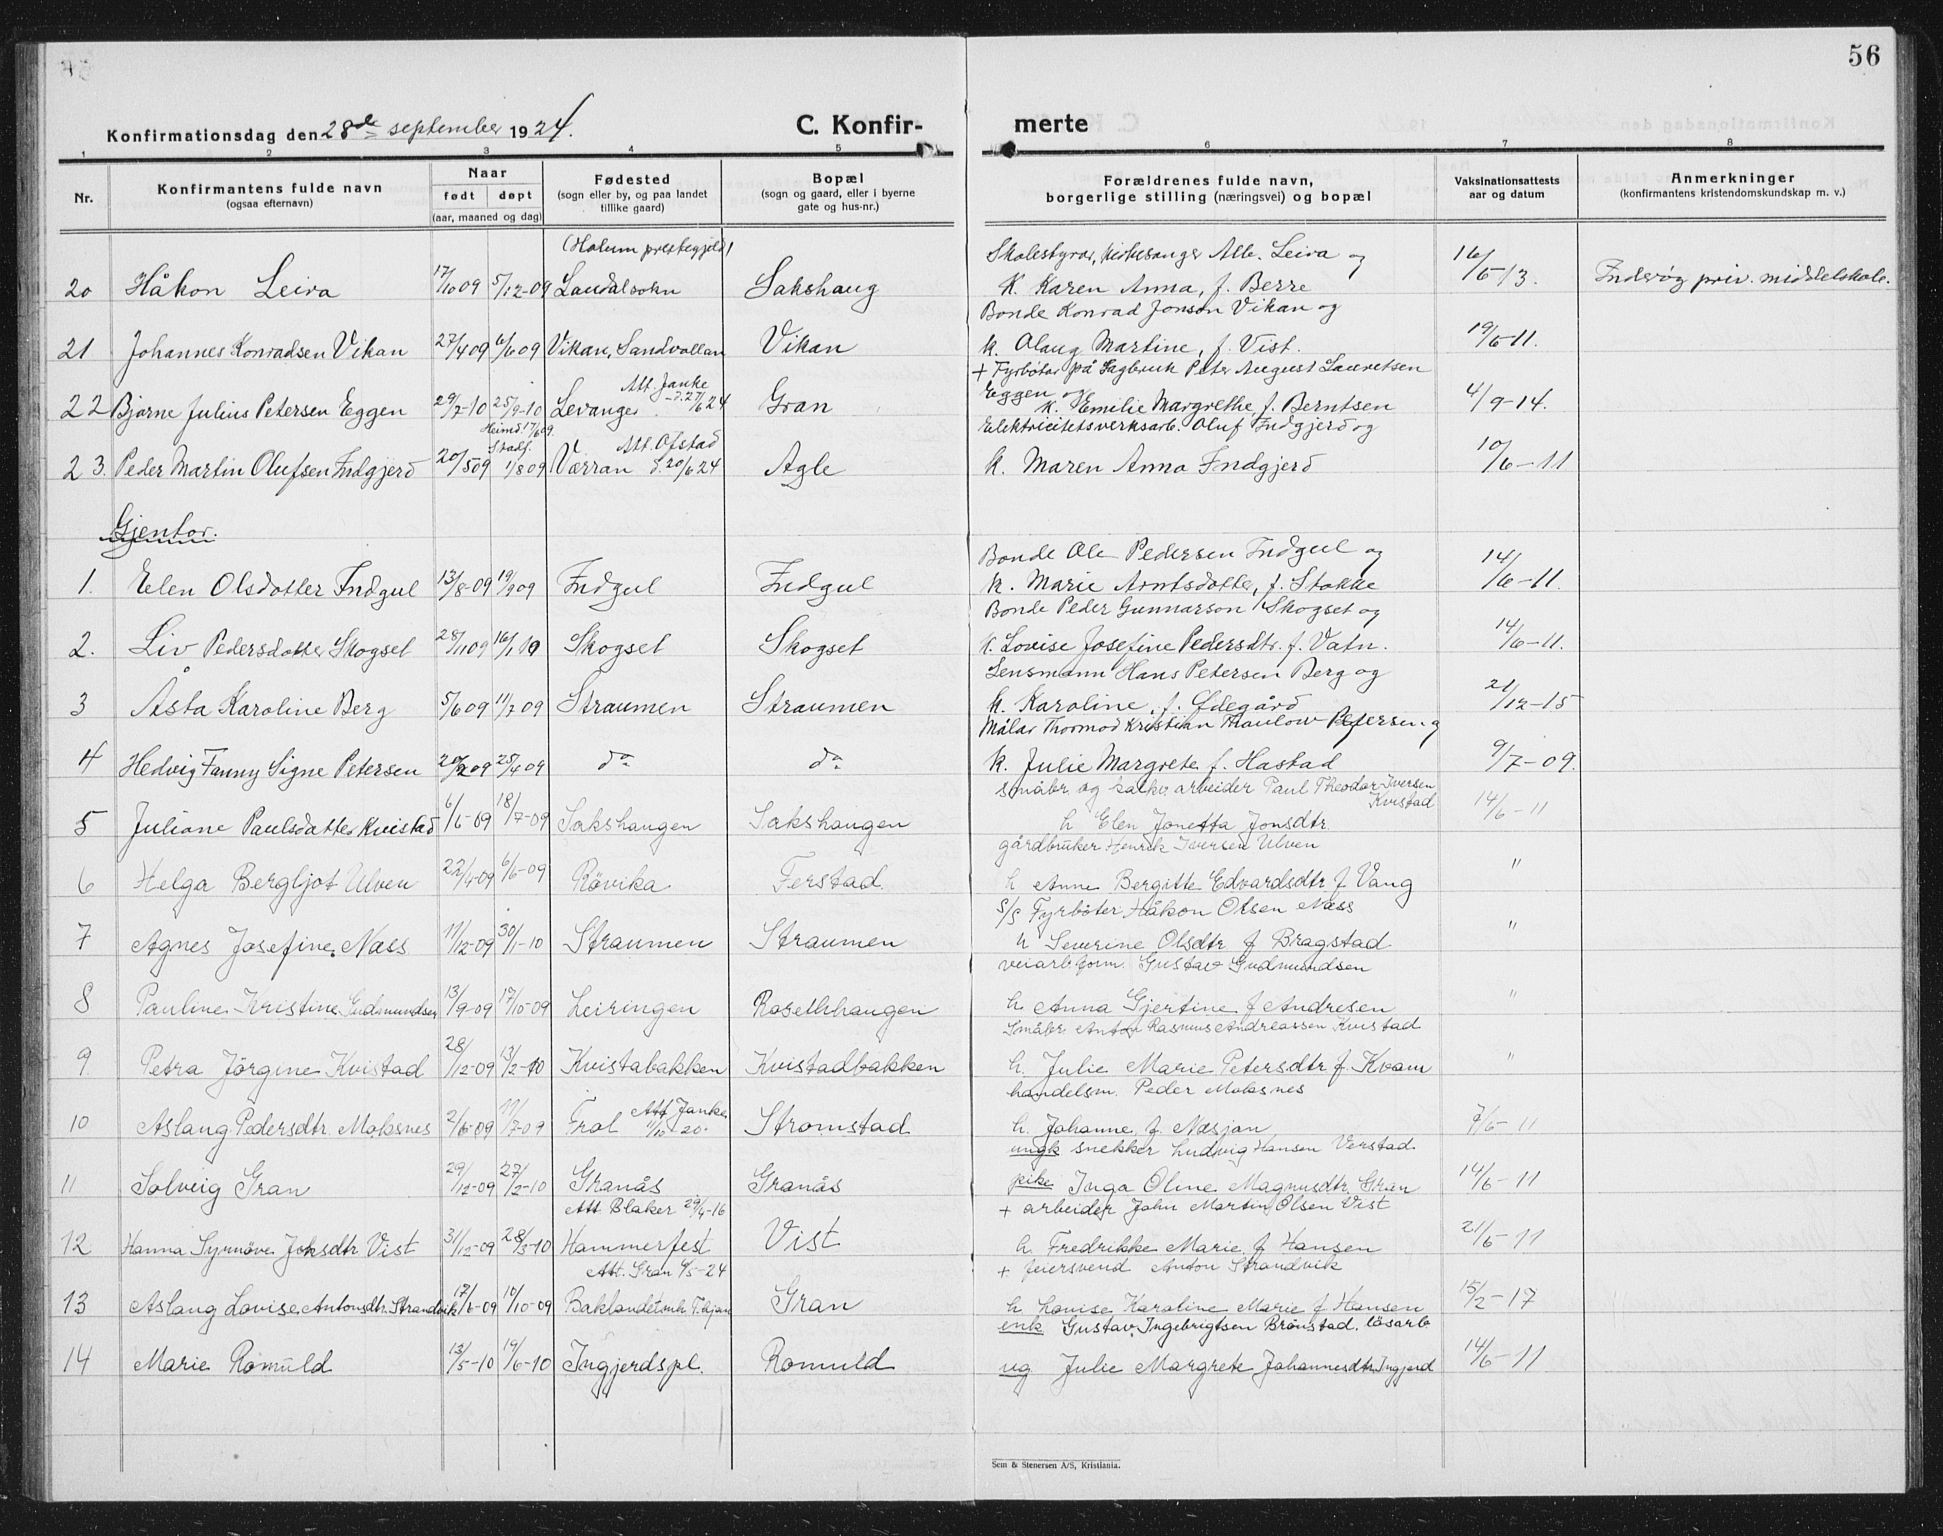 56
Konfirmationsdag den 28de september 1924. C. Konfir- merte
1 2 3 4 5 6 7 8
Nr. Konfirmantens fulde navn (ogsaa efternavn) Naar født døpt (aar, maaned og dag) Fødested (sogn eller by, og paa landet tillike gaard) Bopæl (sogn og gaard, eller i byerne gate og hus-nr.) Forældrenes fulde navn, borgerlige stilling (næringsvei) og bopæl Vaksinationsattests aar og datum Anmerkninger (konfirmantens kristendomskundskap m. v.)
(Holum prestegjeld) Skolestyrar, kirkesanger Alb. Leira og
20 Håkon Leira 17/10 09 5/12-09 Laudalsokn Sakshaug k. Karen Anna, f. Berre 16/6 13. Inderøy priv. middelskole.
Bonde Konrad Jonson Vikan og
21 Johannes Konradsen Vikan 27/4 09 6/6 09 Vikan, Sandvollan Vikan k. Olaug Martine, f. Vist. 19/6-11.
+ Fyrbøtar på Sagbruk Peter August Lauretsen
Att. Janke
22 Bjarne Julius Petersen Eggen 29/7-10 25/9-10 Levanger d. 27/6 24 Gran Eggen og k. Emilie Margrethe, f. Berntsen 4/9-14.
Heimd. 17/6 09. Elektricitetsverksarb. Oluf Indgjerd og
Stadf. Att. Ofstad
23. Peder Martin Olufsen Indgjerd 20/5 09 1/8 09 Værran d. 20/6 24 Agle k. Maren Anna Indgjerd 10/6-11
Gjentor.
Bonde Ole Pedersen Indgul og
1. Elen Olsdotter Indgul 13/8-09 19/9 09 Indgul Indgul k. Marie Arntsdotter, f. Stokke 14/6-11.
Bonde Peder Gunnarson Skogset og
2. Liv Pedersdotter Skogset 28/11 09 16/1 10 Skogset Skogset k. Lovise Josefine Pedersdtr. f. Vatn. 14/6-11.
Lensmann Hans Petersen Berg og
3 Åsta Karoline Berg 5/6 09 11/7 09 Straumen Straumen k. Karoline, f. Ødegård 21/12-15
Målar Thormod Kristian Thaulow Petersen og
4 Hedvig Fanny Signe Petersen 20/2 09 25/4 09 do do k. Julie Margrete f. Hastad 9/7-09.
småbr og arbeider Paul Theodor Iversen Kvistad
5 Juliane Paulsdatter Kvistad 6/6-09 18/7-09 Sakshaugen Sakshaugen h Elen Jonetta Jonsdtr. 14/6-11
gårdbruker Henrik Iversen Ulven
6 Helga Bergljot Ulven 22/4-09 6/6-09 Røvika Ferstad h Anne Bergitte Edvardsdtr f Vang "
s/s Fyrbøter Håkon Olsen Næss
7 Agnes Josefine Næss 11/12-09 30/1-10 Straumen Straumen h Severine Olsdtr f Bragstad "
veiarb.form. Gustav Gudmundsen
8 Pauline Kristine Gudmundsen 13/9-09 17/10-09 Leiringen Roselthhaugen h Anna Gjertine f Andresen "
Småbr Anton Rasmus Andreassen Kvistad
9. Petra Jørgine Kvistad 28/12-09 13/2-10 Kvistabakken Kvistadbakken h. Julie Marie Petersdtr f. Kvam "
handelsm. Peder Moksnes
10 Aslaug Pedersdtr. Moksnes 2/6-09 11/7-09 Frol Att Janke 11/10 20. Stromstad h. Johanne f. Næsjan 7/6-11
ungk snekker Ludvig Hansen Verstad
11 Solveig Gran 29/12-09 27/2-10 Granås Granås pike Inga Oline Magnusdtr. Gran 14/6-11
Att Blaker 29/4-16 + arbeider John Martin Olsen Vist
12 Hanna Synnøve Johsdtr Vist 31/12-09 28/3-10 Hammerfest Vist h. Fredrikke Marie f Hansen 21/6-11
Att. Gran 6/5-24 + feiersvend Anton Strandvik
13 Aslaug Lovise Antonsdtr. Strandvik 17/6-09 10/10-09 Baklandet Gran h. Louise Karoline Marie f Hansen 15/2-17
enk Gustav Ingebrigtsen Brønstad, løsarb
14 Marie Romuld 13/5-10 19/6-10 Ingjerdspl. Romuld ug Julie Margrete Johannesdtr Ingjerd 14/6-11
Sem & Stenersen A/S, Kristiania.